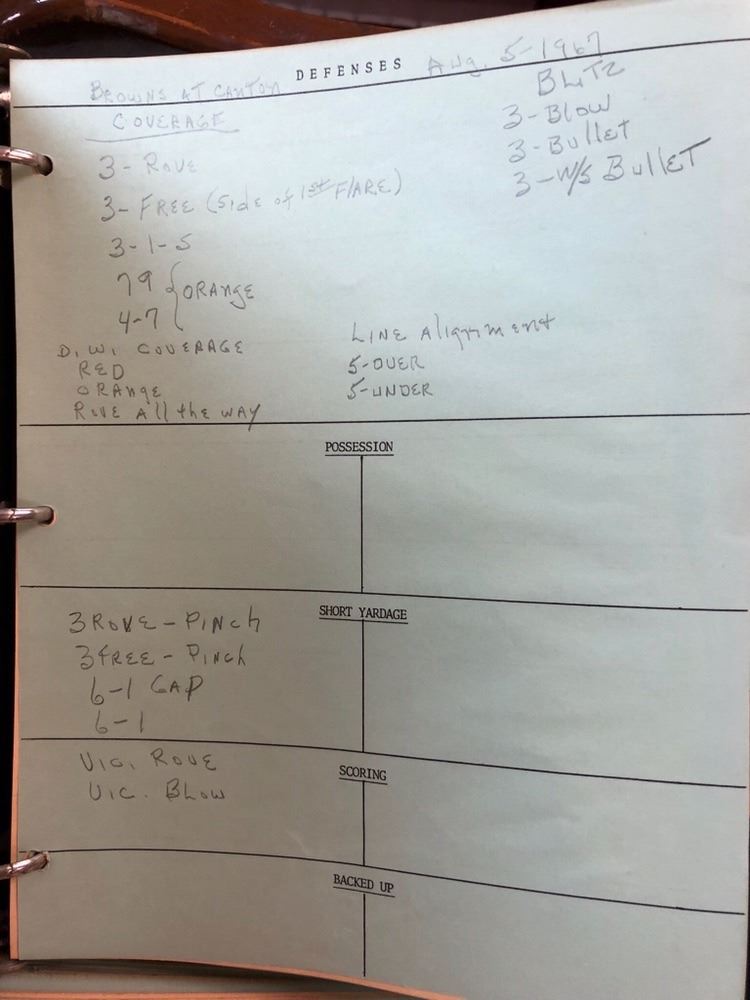 DEFENSES Aug. 5-1967
BROWNS AT CANTON
COVERAGE
3- ROVE
3- FREE (Side of 1st FLARE)
3-1-5
79 { ORANGE
4-7
D.W. COVERAGE
RED
ORANGE
ROVE All the WAY
BLITZ
3-BLOW
3-BULLET
3-W/S BULLET
LINE Alignment
5-OVER
5-UNDER
POSSESSION
SHORT YARDAGE
3 ROVE - PINCH
3 FREE - PINCH
6-1 GAP
6-1
SCORING
VIC. ROVE
VIC. BLOW
BACKED UP